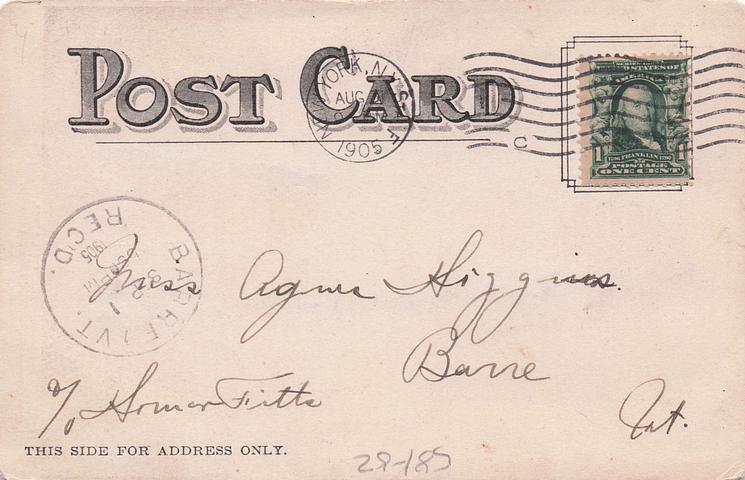 POST CARD
NEW YORK, N.Y.
AUG
1905
F
C
SERIES 1902
UNITED STATES OF
AMERICA
1 FRANKLIN 1
POSTAGE
ONE CENT
BARRE, VT.
REC'D.
1905
Miss Agnes Higgins.
Barre
c/o Homer Fitts
Vt.
THIS SIDE FOR ADDRESS ONLY.
28-185